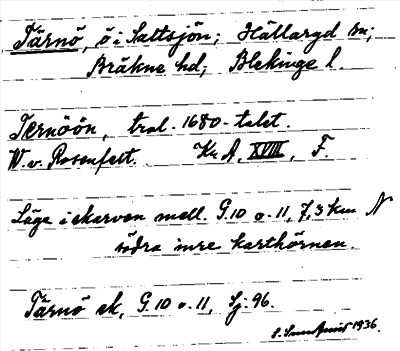 Tärnö, ö i Saltsjön; Hällaryd sn;
Bräkne hd; Blekinge l.
Ternöön, trol. 1680-talet.
W. v. Rosenfelt. Kr. A, XVIII, F.
Läge i skarven mell. G.10 o. 11, 7,3 km N
södra inre karthörnen.
Tärnö sk, G.10 o. 11, Sj: 96.
1936.